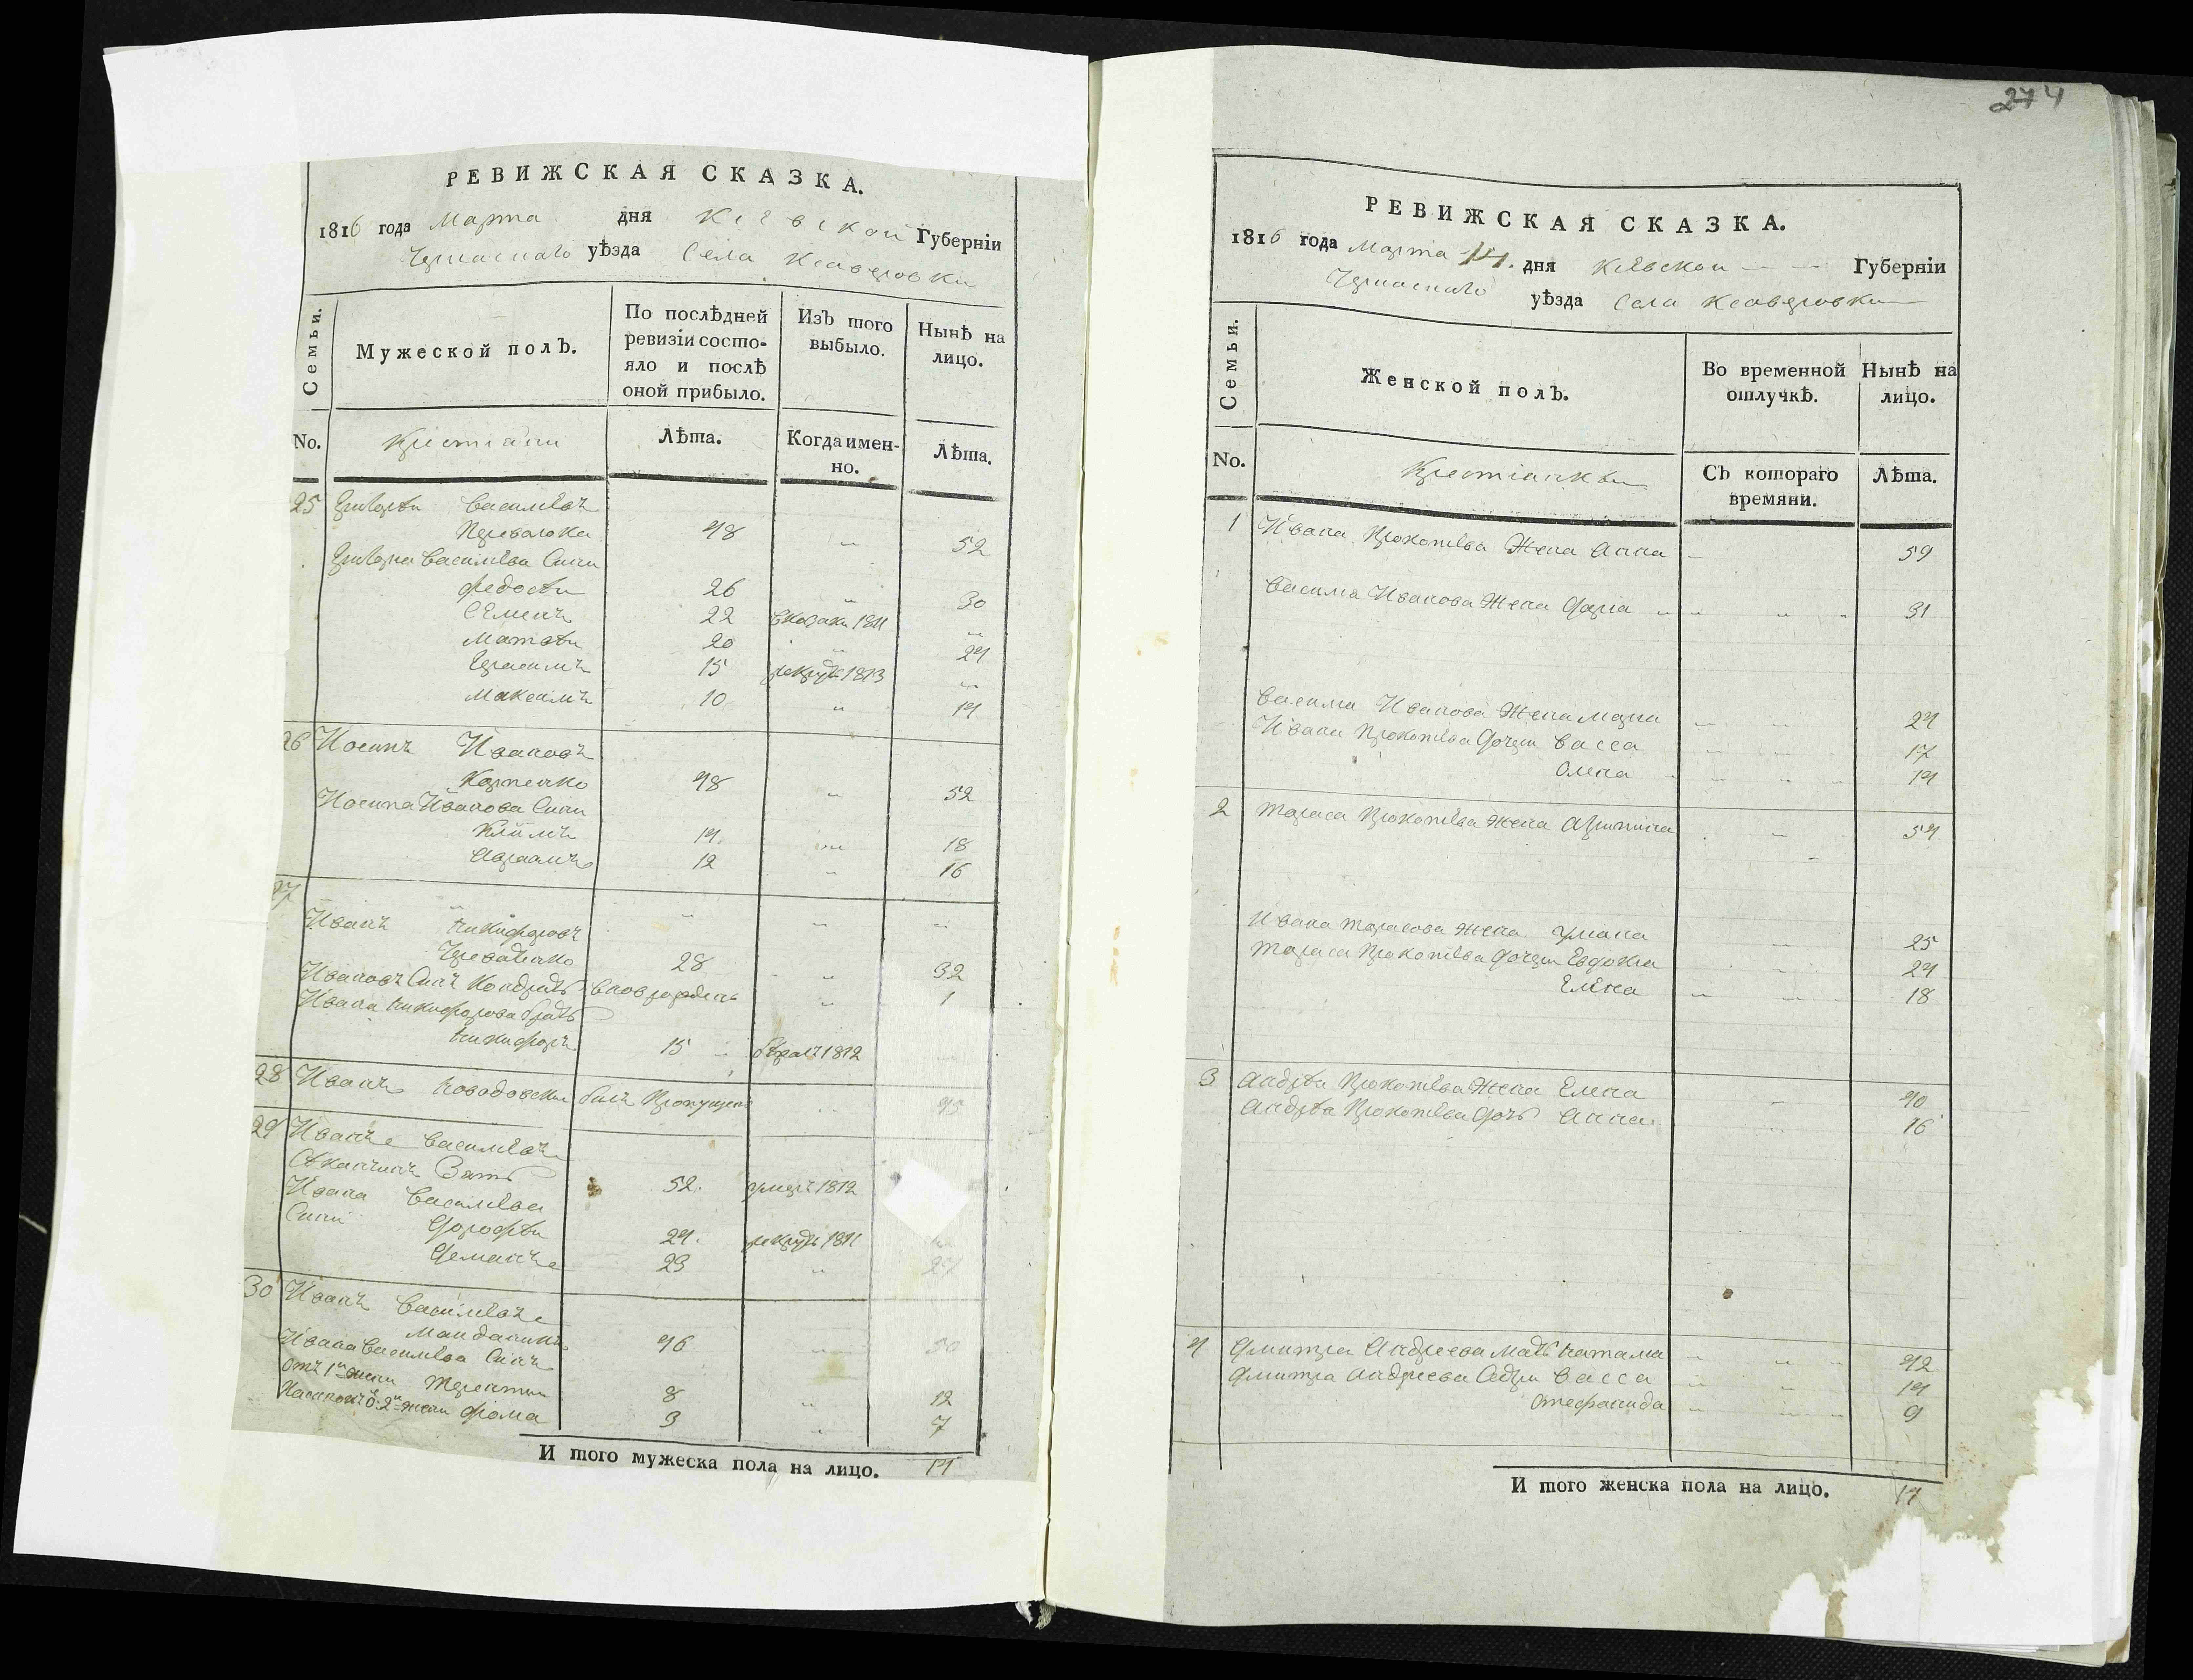 РЕВИЖСКАЯ СКАЗКА.
1816 года Марта дня Кіевской Губерніи
уѣзда Села Ксаверовки
Семьи.
Мужеской полъ.
По послѣдней ревизіи состояло и послѣ оной прибыло.
Изъ того выбыло.
Нынѣ на лицо.
No.
Крестіяни
Лѣта.
Когда именно.
Лѣта.
25 Григорѣй Василіевъ
48 52
Григорія Василіева Сини
Федосѣй 26 30
Семенъ 22 вказаки 1811
Матвѣй 20 24
Герасимъ 15 рекрутъ 1813
Максимъ 10 14
26 Иосипъ Ивановъ
Карпенко 48 52
Иосипа Иванова Сини
Климъ 14 18
Авраамъ 12 16
27
Иванъ Никифоровъ
28 32
Ивановъ Синъ Кондратъ вновь рожденъ 1
Ивана Никифорова братъ
Никифоръ 15 1812
28 Иванъ билъ Пропущенъ 45
29 Иванъ Василіевъ
Зять 52 умеръ 1812
Ивана Василіева
Сини Дорофѣй 24 рекрутъ 1811
Демянъ 23 27
30 Иванъ Василіевъ
46 50
Ивана Василіева Синъ
отъ 1й жени Терентий 8 12
2й жени Фома 3 7
И того мужеска пола на лицо. 14
274
РЕВИЖСКАЯ СКАЗКА.
1816 года Марта 14. дня Кіевской Губерніи
уѣзда Села Ксаверовки
Семьи.
Женской полъ.
Во временной отлучкѣ.
Нынѣ на лицо.
No.
Крестіянки
Съ котораго времяни.
Лѣта.
1 Ивана Прокопіева Жена Анна 59
Василя Иванова Жена Дарія 31
Василя Иванова Жена Марія 24
Ивана Прокопіева Дочери Васса 17
Олена 14
2 Тараса Прокопіева Жена Агрипина 54
Ивана Тарасова Жена Уліана 25
Тараса Прокопіева Дочери Евдокія 24
Елена 18
3 Андрѣя Прокопіева Жена Елена 40
Андрѣя Прокопіева Дочь Анна 16
4 Дмитра Андреева Мать Наталія 42
Дмитра Андреева Сестри Васса 14
Стефанида 9
И того женска пола на лицо. 14